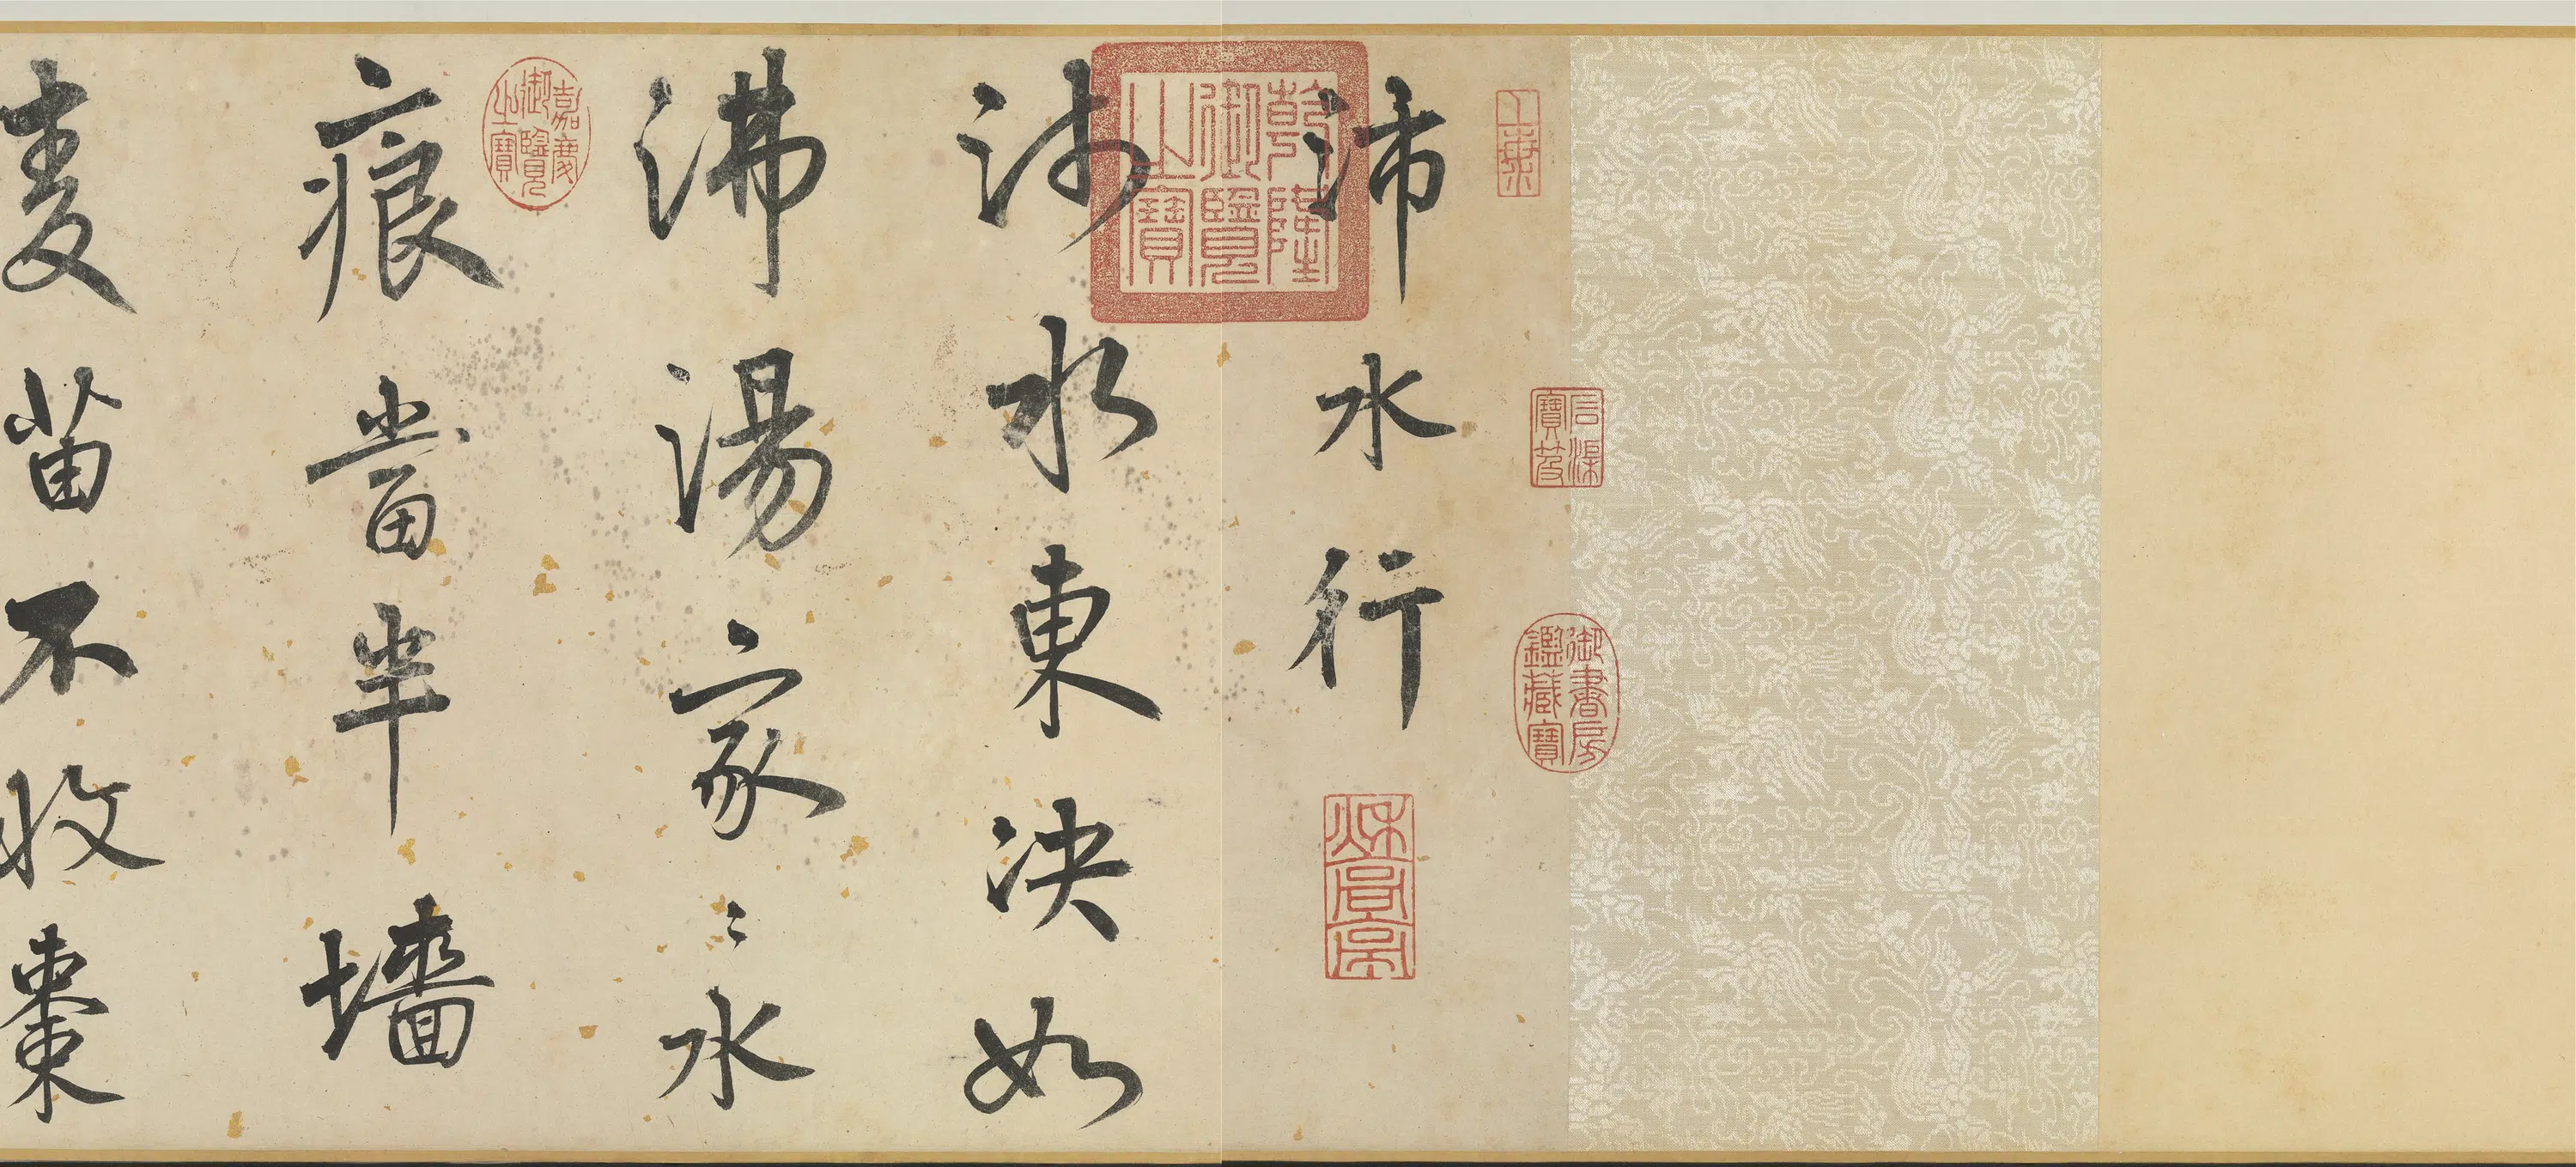 石渠寶笈
御書房鑑藏寶
沛水行
乾隆御覽之寶
沛水東決如
沸湯家〻水
嘉慶御覽之寶
痕當半墻
麥苗不收棗